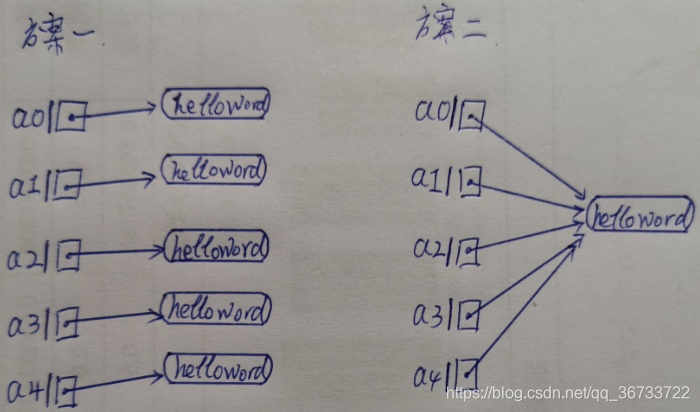 方案一
方案二
a0 helloword
a1 helloword
a2 helloword
a3 helloword
a4 helloword
a0
a1
a2
a3
a4
helloword
https://blog.csdn.net/qq_36733722